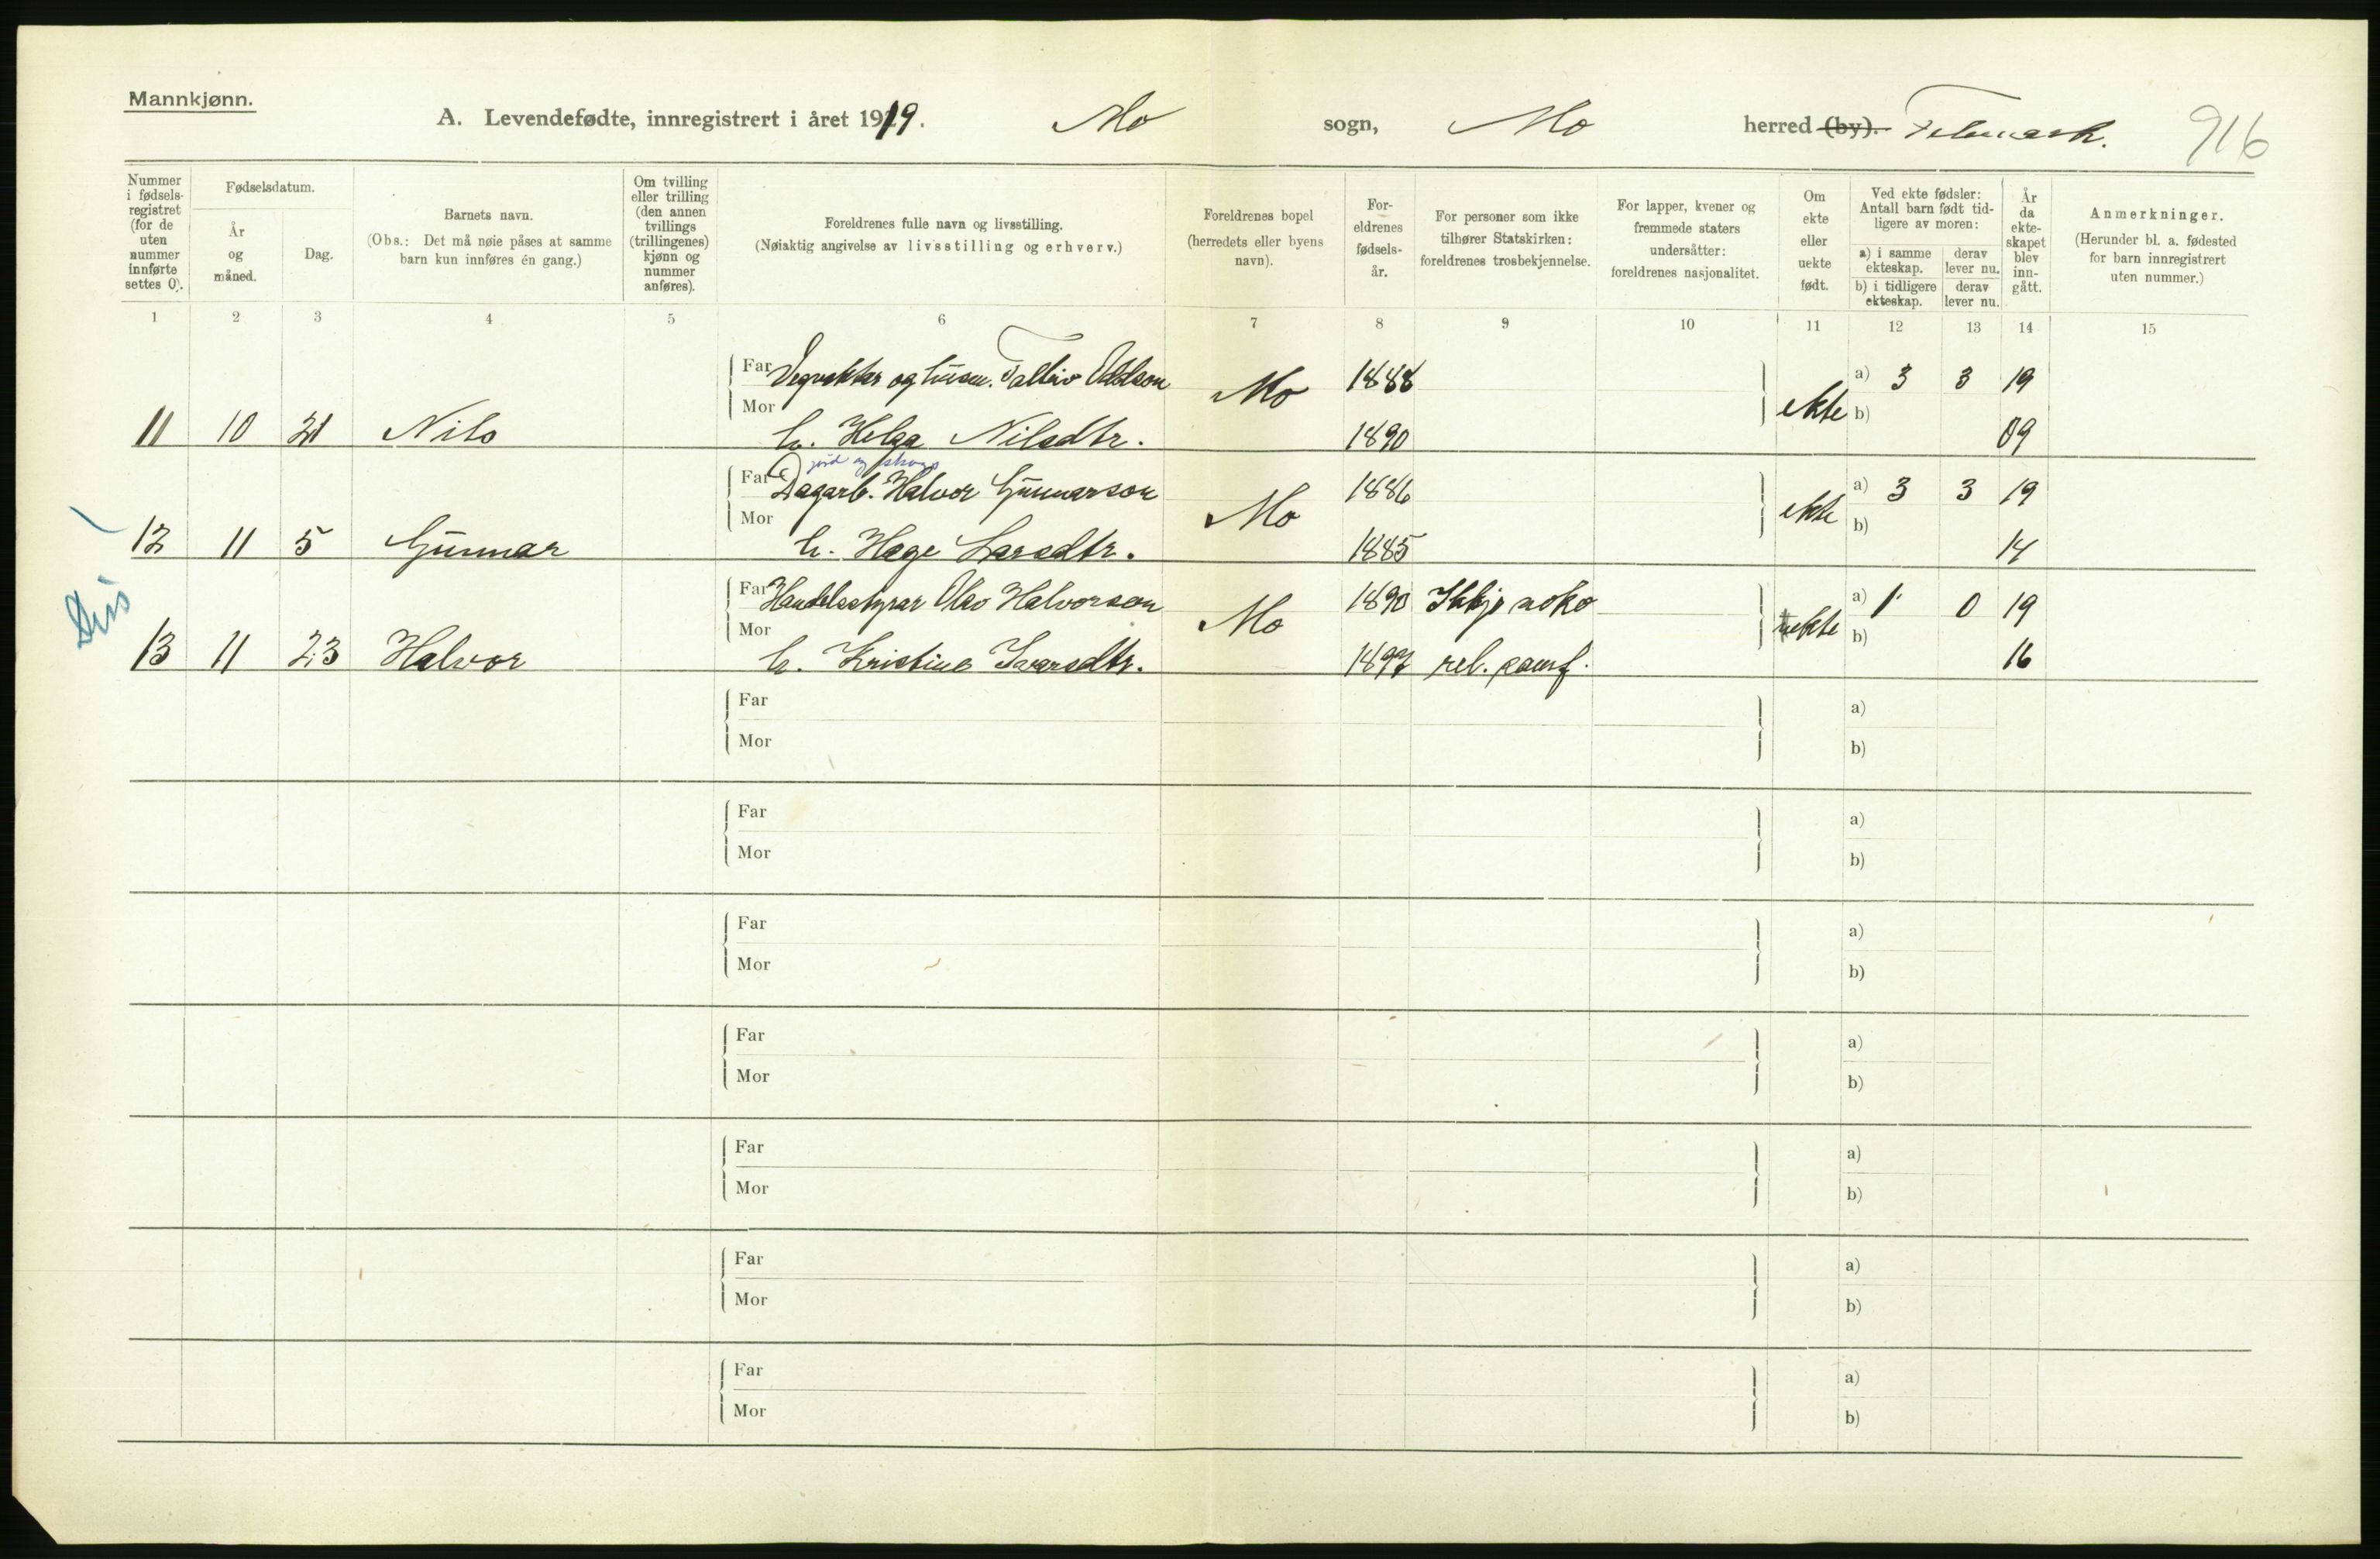 Mannkjønn.
A. Levendefødte, innregistrert i året 1919. Mo sogn, Mo herred (by). Telemark.
916
Nummer i fødsels-registret (for de uten nummer innførte settes 0).
Fødselsdatum.
År og måned.
Dag.
Barnets navn.
(Obs.: Det må nøie påses at samme barn kun innføres én gang.)
Om tvilling eller trilling (den annen tvillings (trillingenes) kjønn og nummer anføres).
Foreldrenes fulle navn og livsstilling.
(Nøiaktig angivelse av livsstilling og erhverv.)
Foreldrenes bopel (herredets eller byens navn).
For-eldrenes fødsels-år.
For personer som ikke tilhører Statskirken: foreldrenes trosbekjennelse.
For lapper, kvener og fremmede staters undersåtter: foreldrenes nasjonalitet.
Om ekte eller uekte født.
Ved ekte fødsler: Antall barn født tid-ligere av moren:
a) i samme ekteskap.
derav lever nu.
b) i tidligere ekteskap.
derav lever nu.
År da ekte-skapet blev inn-gått.
Anmerkninger.
(Herunder bl. a. fødested for barn innregistrert uten nummer.)
1 2 3 4 5 6 7 8 9 10 11 12 13 14 15
Far Vegvakter og husm. Talleiv Olson Mo 1888 ekte a) 3 3 19
Mor b)
11 10 21 Nils h. Helga Nilsdtr. 1890 09
jord og skogs
Far Dagarb. Halvor Gunnarson Mo 1886 ekte a) 3 3 19
Mor b)
12 11 5 Gunnar h. Hæge Larsdtr. 1885 14
Far Handelsstyrar Olav Halvorson Mo 1890 Ikkje noko ekte a) 1 0 19
Mor b)
13 11 23 Halvor h. Kristine Ivarsdtr. 1897 rel. samf. 16
Far a)
Mor b)
Far a)
Mor b)
Far a)
Mor b)
Far a)
Mor b)
Far a)
Mor b)
Far a)
Mor b)
Far a)
Mor b)